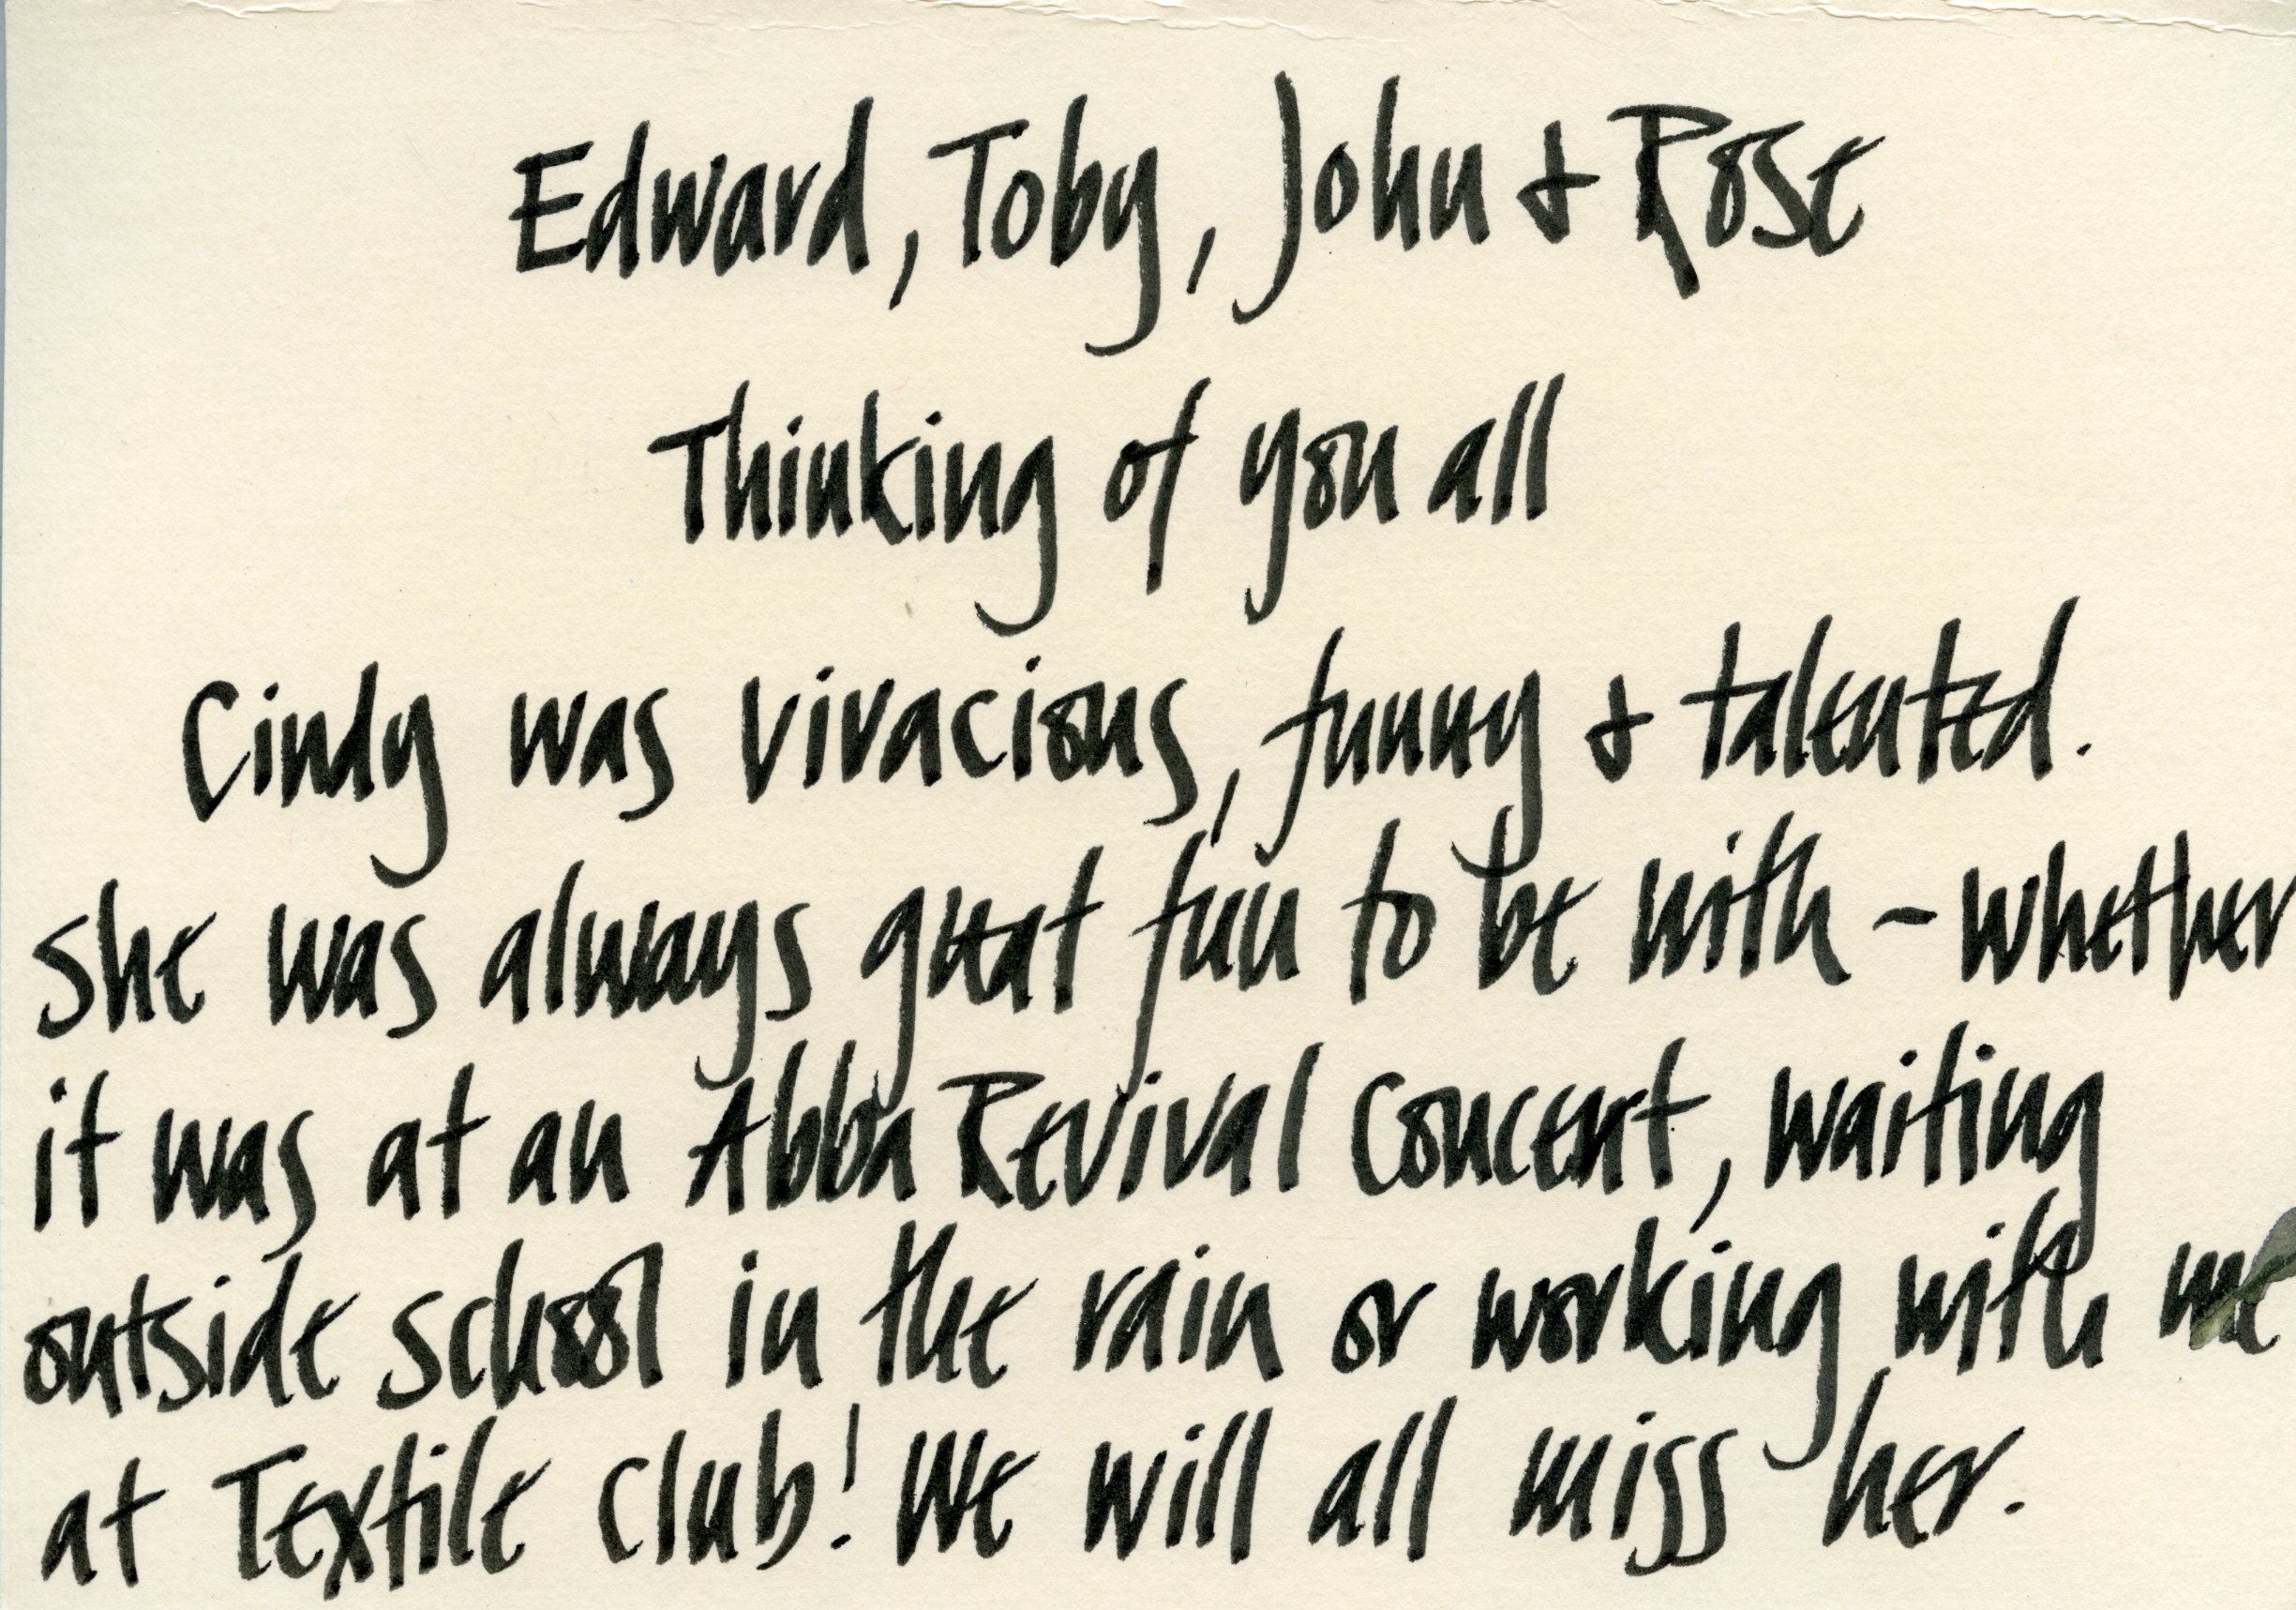 Edward, Toby, John & Rose
Thinking of you all
Cindy was vivacious, funny & talented.
She was always great fun to be with - whether
it was at an Abba Revival Concert, waiting
outside school in the rain or working with me
at Textile Club! We will all miss her.